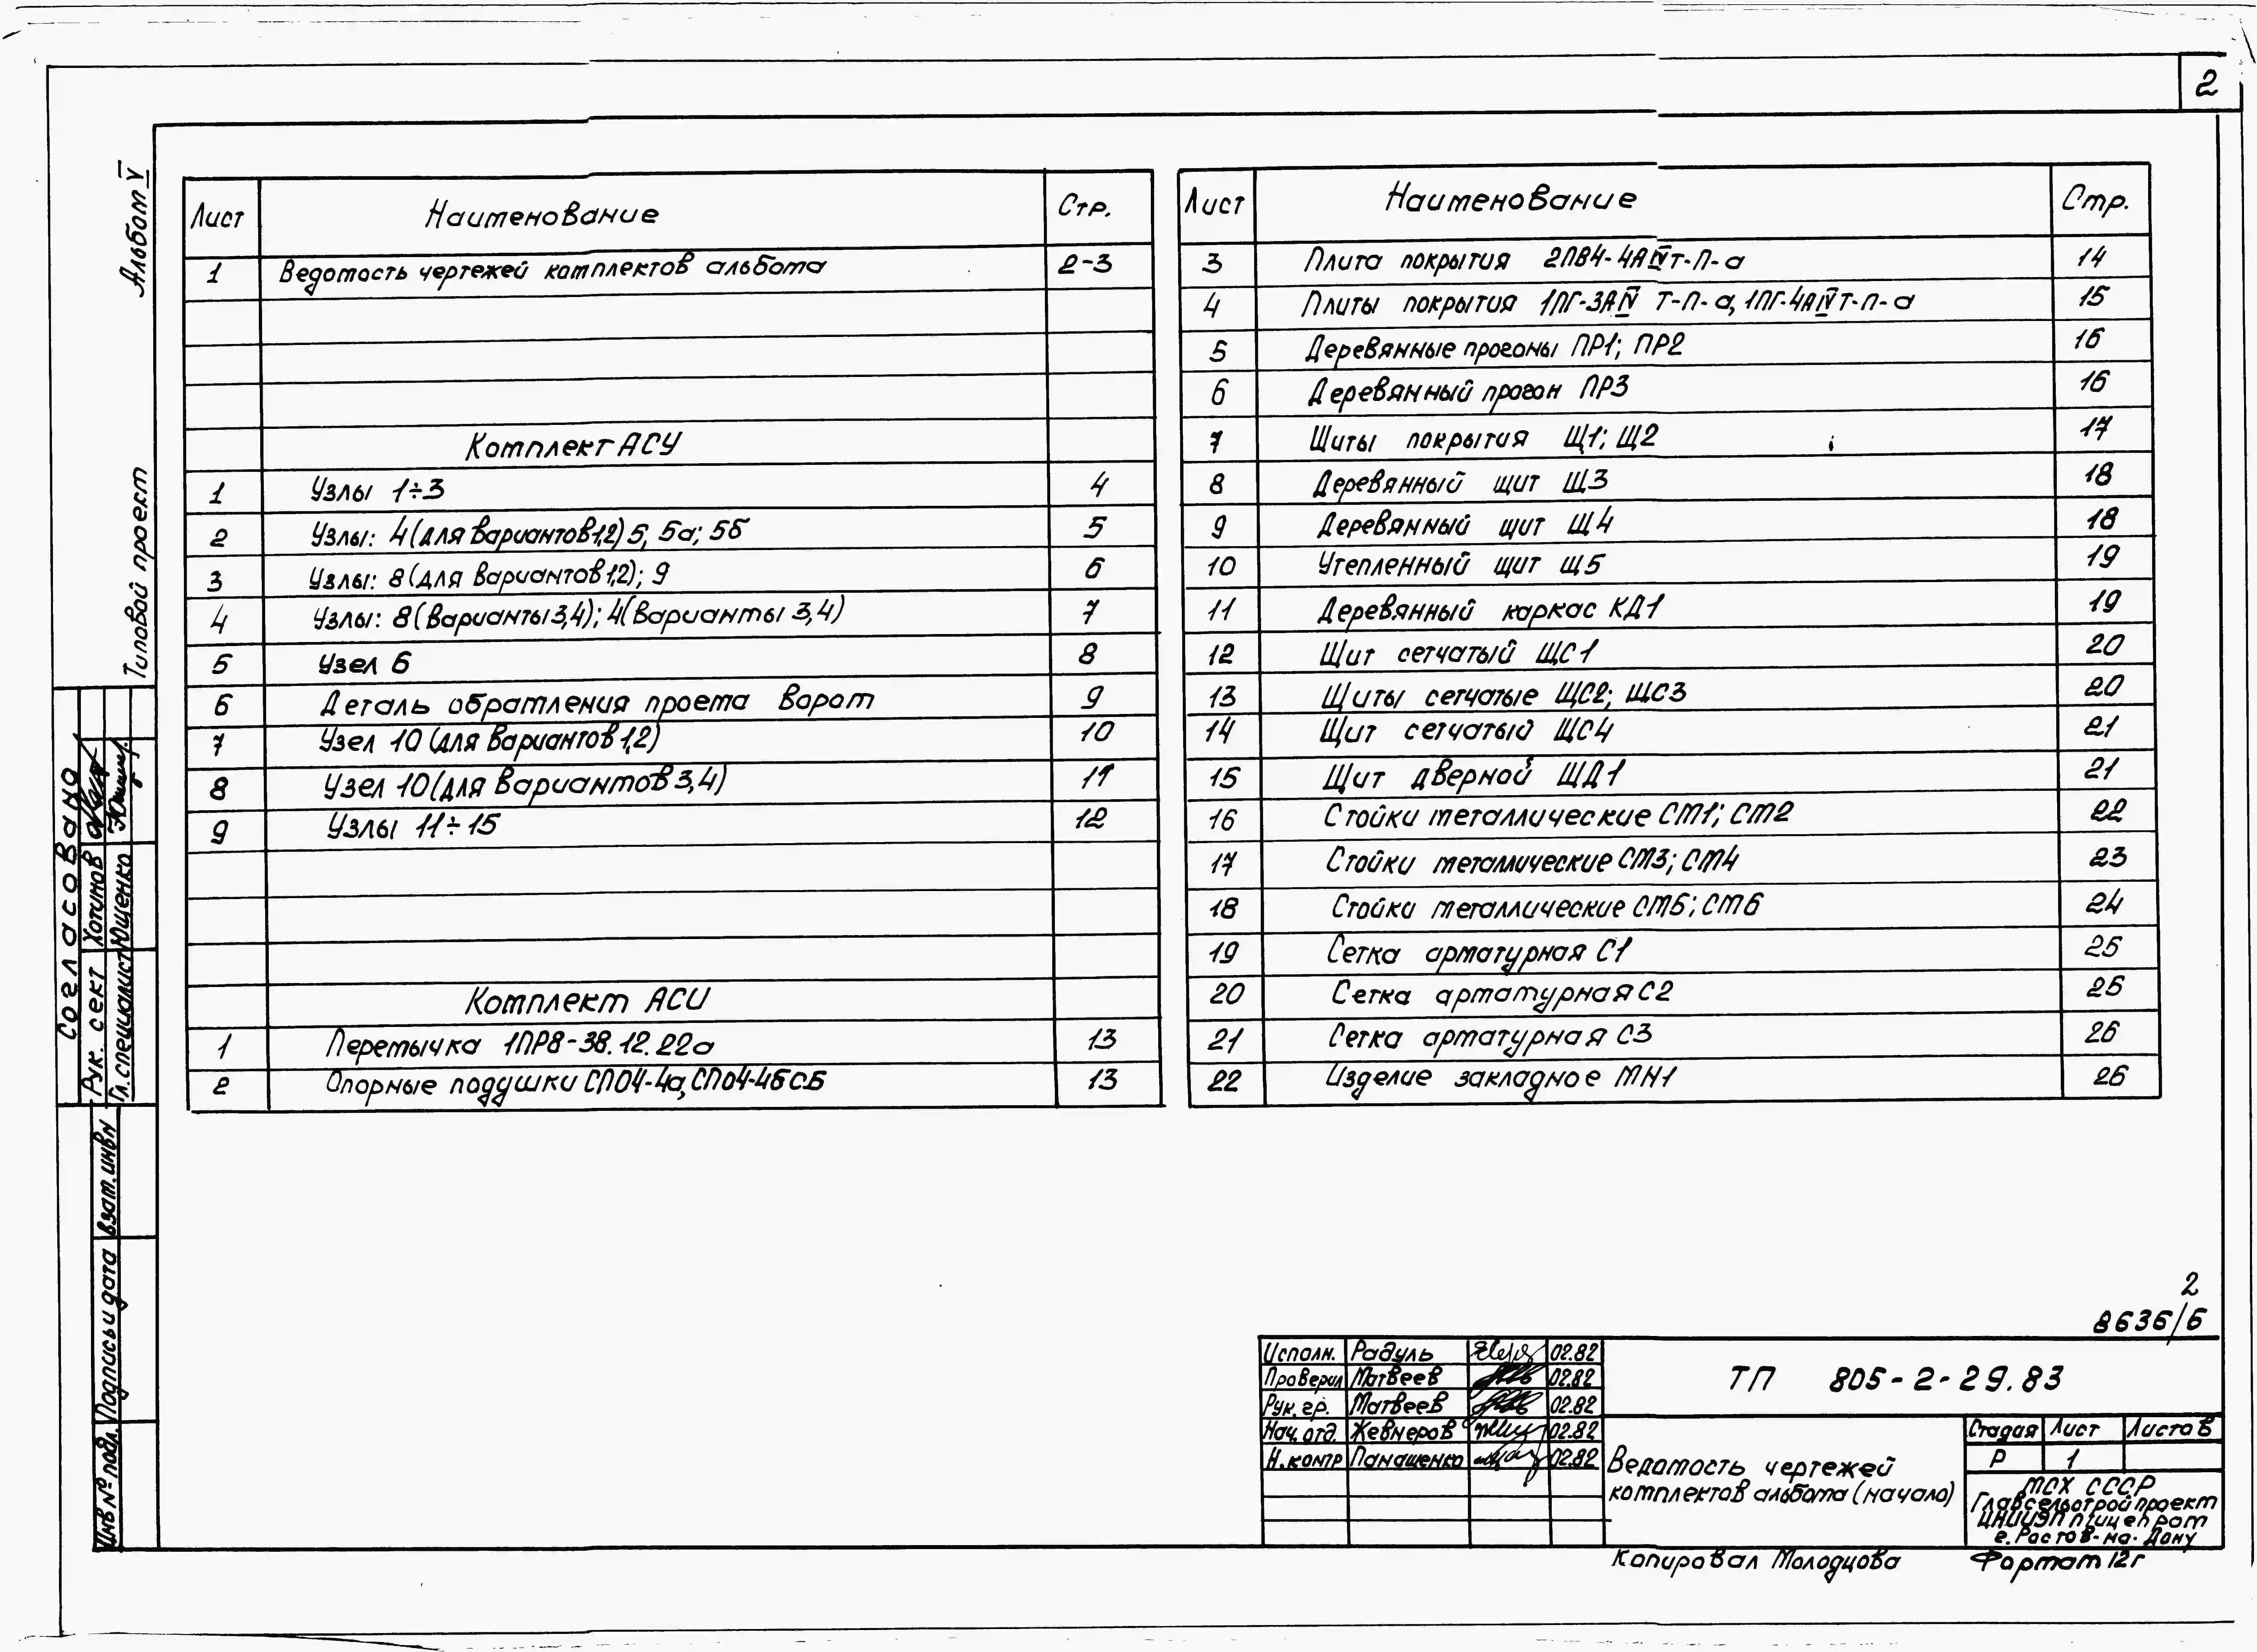 2
Альбом V
Типовой проект
Лист Наименование Стр.
1 Ведомость чертежей комплектов альбома 2-3
Комплект АСУ
1 Узлы 1÷3 4
2 Узлы: 4 (для вариантов 1,2) 5, 5а; 5б 5
3 Узлы: 8 (для вариантов 1,2); 9 6
4 Узлы: 8 (варианты 3,4); 4 (варианты 3,4) 7
5 Узел 6 8
6 Деталь обрамления проема ворот 9
7 Узел 10 (для вариантов 1,2) 10
8 Узел 10 (для вариантов 3,4) 11
9 Узлы 11÷15 12
Комплект АСИ
1 Перемычка 1ПР8-38.12.22а 13
2 Опорные подушки СП04-4а, СП04-4бсб 13
Лист Наименование Стр.
3 Плита покрытия 2ПВ4-4АIVт-П-а 14
4 Плиты покрытия 1ПГ-3АIV Т-П-а, 1ПГ-4АIVТ-П-а 15
5 Деревянные прогоны ПР1; ПР2 16
6 Деревянный прогон ПР3 16
7 Щиты покрытия Щ1; Щ2 17
8 Деревянный щит Щ3 18
9 Деревянный щит Щ4 18
10 Утепленный щит Щ5 19
11 Деревянный каркас КД1 19
12 Щит сетчатый ЩС1 20
13 Щиты сетчатые ЩС2; ЩС3 20
14 Щит сетчатый ЩС4 21
15 Щит дверной ЩД1 21
16 Стойки металлические СМ1; СМ2 22
17 Стойки металлические СМ3; СМ4 23
18 Стойки металлические СМ5; СМ6 24
19 Сетка арматурная С1 25
20 Сетка арматурная С2 25
21 Сетка арматурная С3 26
22 Изделие закладное МН1 26
Согласовано
Рук. сект Хотинов
Гл. специалист Ющенко
Взам. инв №
Подпись и дата
Инв № подл.
2
8636/6
Исполн. Радуль 02.82
Проверил Матвеев 02.82
Рук. гр. Матвеев 02.82
Нач. отд. Жевнеров 02.82
Н. контр Панашенко 02.82
ТП 805-2-29.83
Ведомость чертежей
комплектов альбома (начало)
Стадия Лист Листов
Р 1
МСХ СССР
Главсельстройпроект
ЦНИИЭПптицепром
г. Ростов-на-Дону
Копировал Молодцова Формат 12г